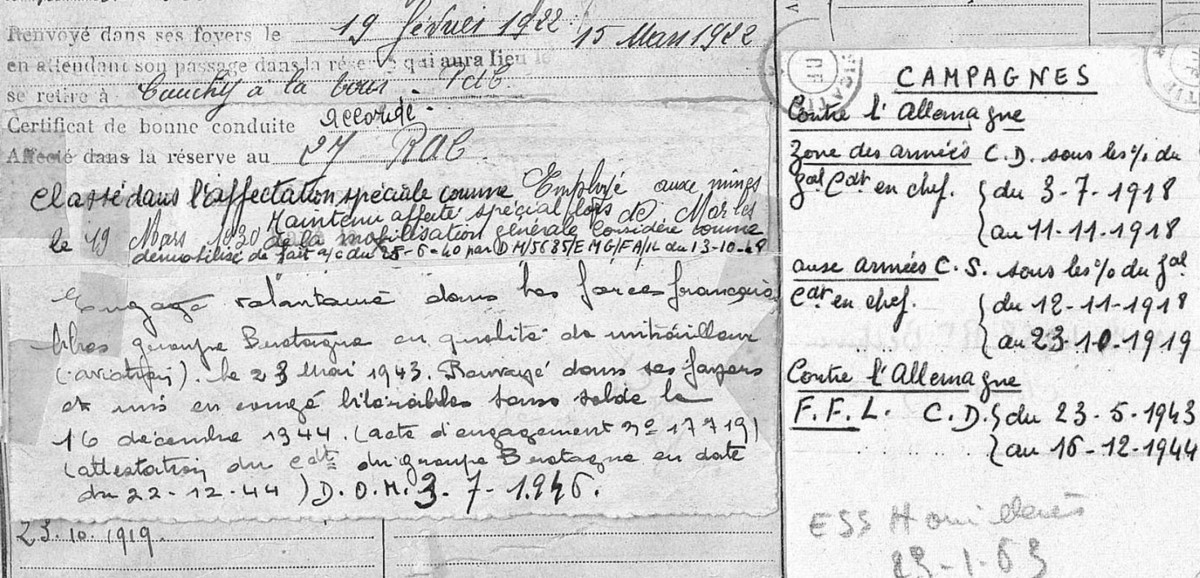 Renvoyé dans ses foyers le 19 février 1922 15 Mars 1922
en attendant son passage dans la réserve qui aura lieu le
se retire à Cauchy à la tour. PdC
Certificat de bonne conduite accordé.
Affecté dans la réserve au 27 RAC.
Classé dans l'affectation spéciale comme Employé aux mines
de Marles
Maintenu affecté spécial lors
le 19 Mars 1930 de la mobilisation générale Considéré comme
démobilisé de fait a/c du 25-6-40 par DM/5635/EMG/FA/1L du 13-10-48
Engagé volontaire dans les forces françaises
libres groupe Bretagne en qualité de mitrailleur
(aviation). le 23 Mai 1943. Renvoyé dans ses foyers
et mis en congé libérable sans solde le
16 décembre 1944. (acte d'engagement nº 17719)
(attestation du cdt du groupe Bretagne en date
du 22-12-44) D.O.M. 3.7-1946.
23.10.1919.
CAMPAGNES
Contre l'Allemagne
Zone des armées C.D. sous les % du
Gal Cdt en chef. { du 3-7-1918
{ au 11-11-1918
aux armées C.S. sous les % du Gal
Cdt en chef. { du 12-11-1918
{ au 23-10-1919
Contre l'Allemagne
F.F.L. C.D. { du 23-5-1943
{ au 16-12-1944
ESS Houillères
23-1-63